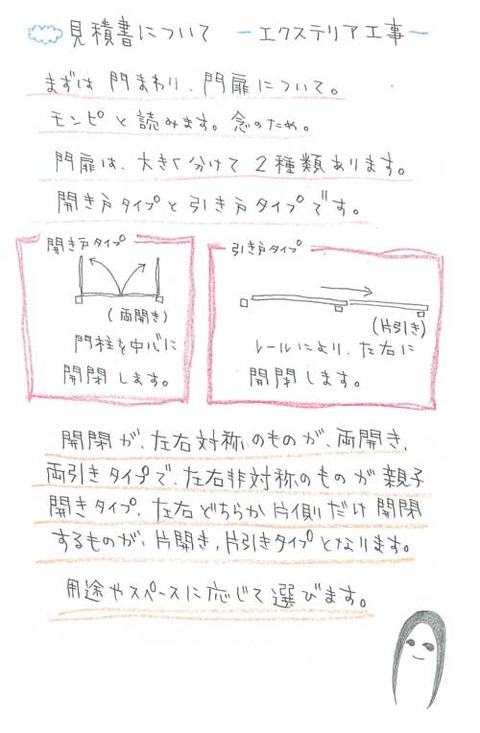 見積書について ーエクステリア工事ー
まずは 門まわり、門扉について。
モンピと読みます。念のため。
門扉は、大きく分けて 2種類あります。
開き戸タイプと引き戸タイプです。
開き戸タイプ
(両開き)
門柱を中心に
開閉します。
引き戸タイプ
(片引き)
レールにより、左右に
開閉します。
開閉が、左右対称のものが、両開き、
両引きタイプで、左右非対称のものが親子
開きタイプ、左右どちらか片側だけ開閉
するものが、片開き、片引きタイプとなります。
用途やスペースに応じて選びます。